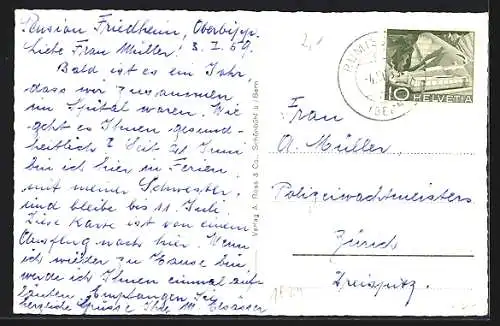 Pension Friedheim, Oberbipp.
Liebe Frau Müller! 3. I 59.
Bald ist es ein Jahr,
dass wir zusammen
im Spital waren. Wie
geht es Ihnen gesund-
heitlich? Seit 21 Juni
bin ich hier in Ferien
mit meiner Schwester,
und bleibe bis 11. Juli.
Diese Karte ist von einem
Ausflug nach hier. Wenn
ich wieder zu Hause bin,
werde ich Ihnen einmal auf-
läuten. Empfangen Sie
herzliche Grüsse Ihre M.
Verlag A. Ross & Co., Schönbühl b/Bern
HELVETIA
Frau
A. Müller,
Polizeiwachtmeisters
Zürich
Dreispitz.